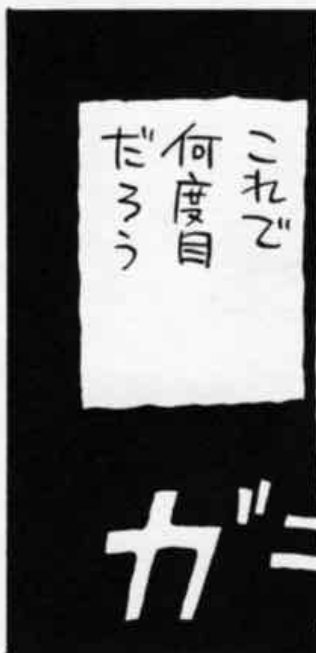 これで
何度目
だろう
ガ